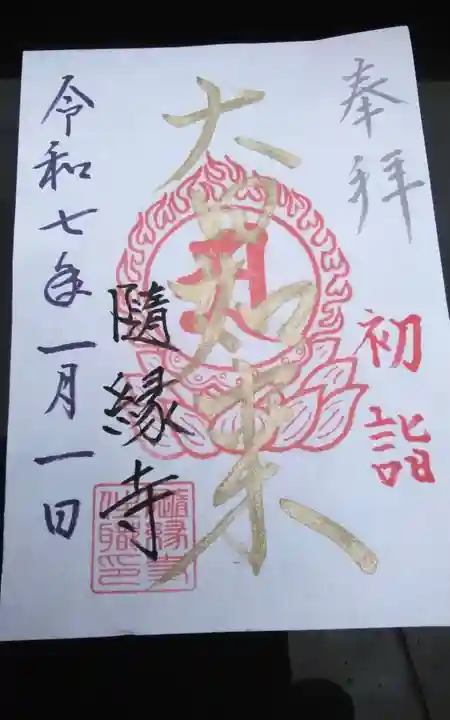 奉拝
初詣
大日如来
隨縁寺
令和七年一月一日